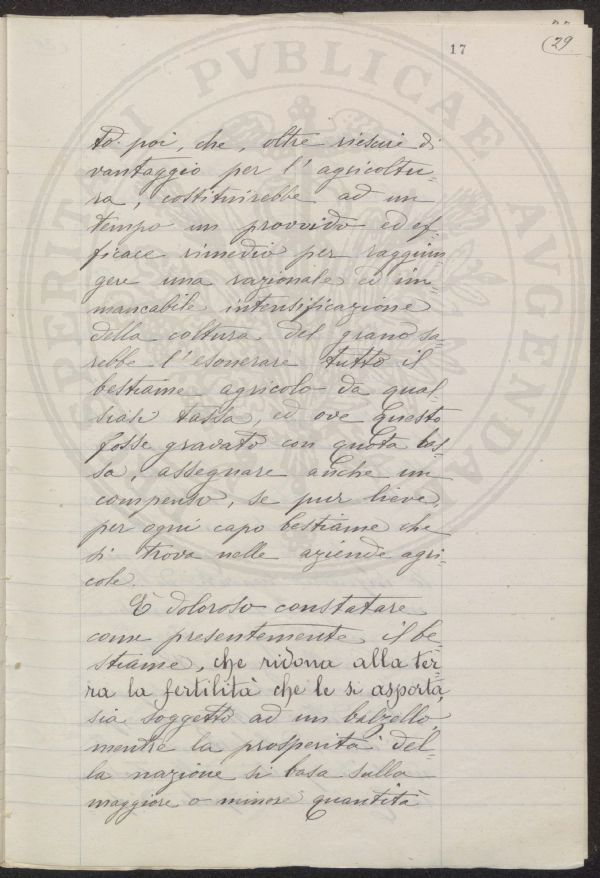 29
17
PVBLICAE
AVGENDAE
to poi, che, oltre riescire di
vantaggio per l'agricoltu-
ra, costituirebbe ad un
tempo un provvido ed ef-
ficace rimedio per raggiun
gere una razionale ed im-
mancabile intensificazione
della coltura del grano sa-
rebbe l'esonerare tutto il
bestiame agricolo da qual
siasi tassa, ed ove questo
fosse gravato con quota
assegnare anche un
compenso, se pur lieve,
per ogni capo bestiame che
si trova nelle aziende agri-
cole.
È doloroso constatare
come presentemente il be-
stiame, che ridona alla ter-
ra la fertilità che le si asporta,
sia soggetto ad un balzello
mentre la prosperità del-
la nazione si basa sulla
maggiore o minore quantità